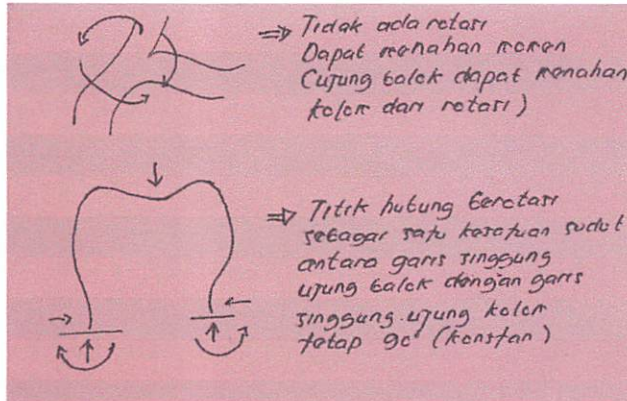 ⇒ Tidak ada rotasi
Dapat menahan momen
(ujung balok dapat menahan
kolom dari rotasi)
⇒ Titik hubung berotasi
sebagai satu kesatuan sudut
antara garis singgung
ujung balok dengan garis
singgung ujung kolom
tetap 90° (konstan)